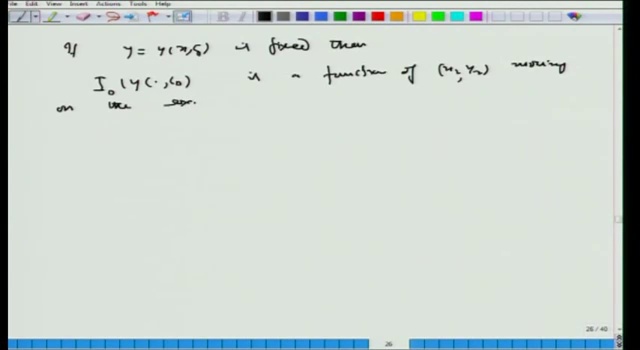 File Edit View Insert Actions Tools Help
If y = y(x,ξ) is fixed then
I₀(y(·,c₀) is a function of (x₂,y₂) moving
on the
26 / 40
26